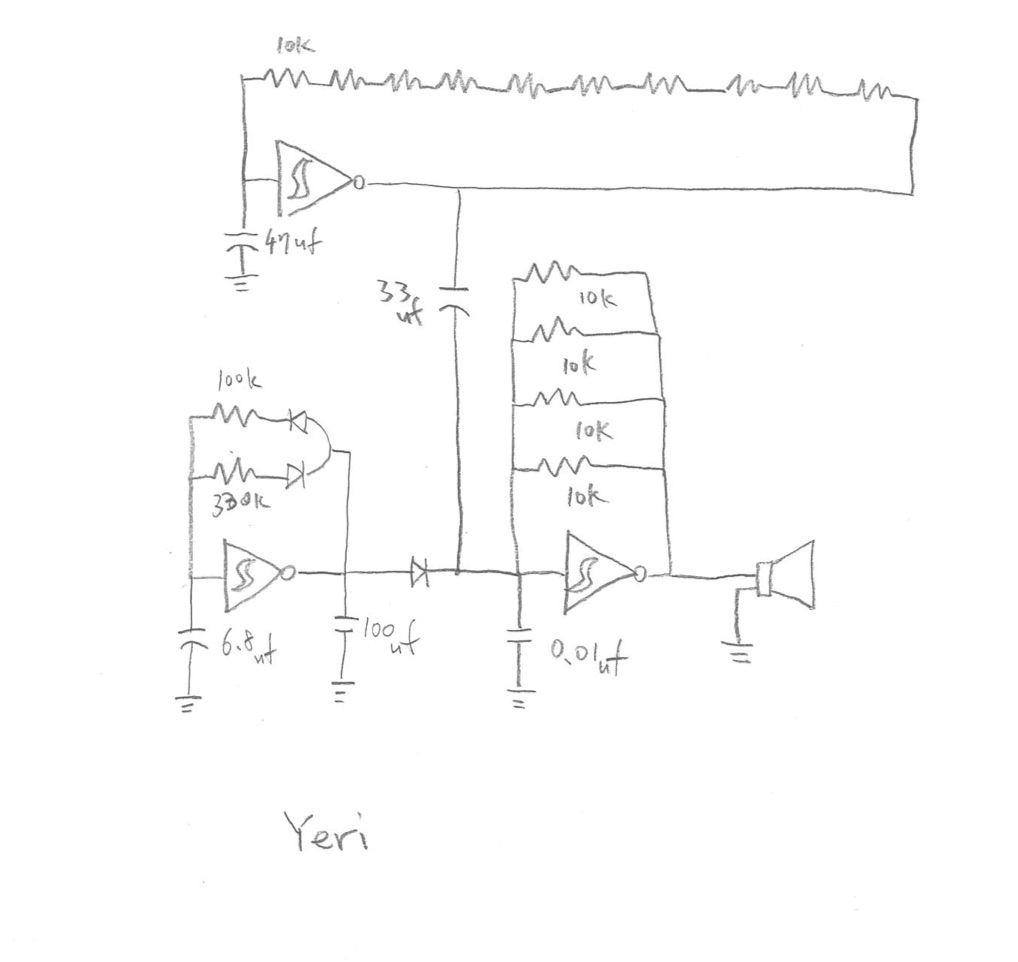 10k
47uf
33
uf
10k
10k
10k
10k
100k
330k
6.8uf
100uf
0.01uf
Yeri